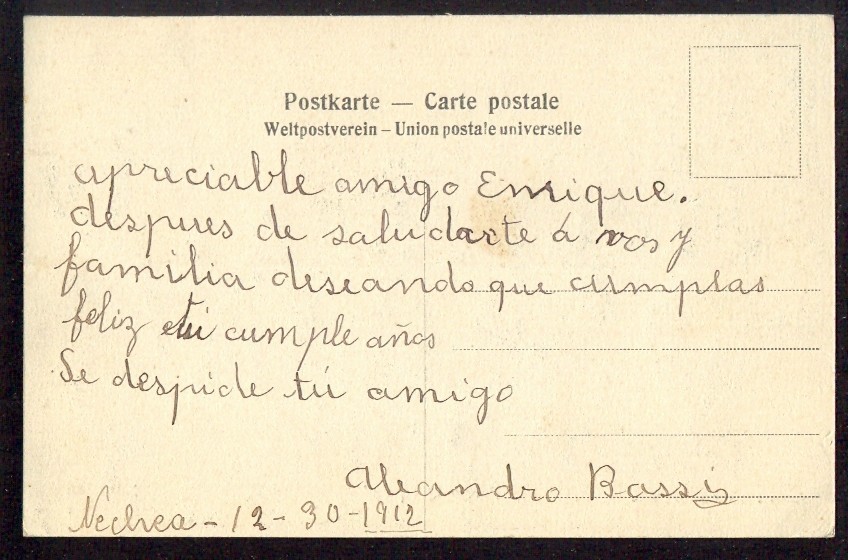 Postkarte — Carte postale
Weltpostverein – Union postale universelle
apreciable amigo Enrique.
despues de saludarte á vos y
familia deseando que cumplas
feliz tú cumple años
Se despide tú amigo
Aleandro Bassi
- 12 - 30 - 1912